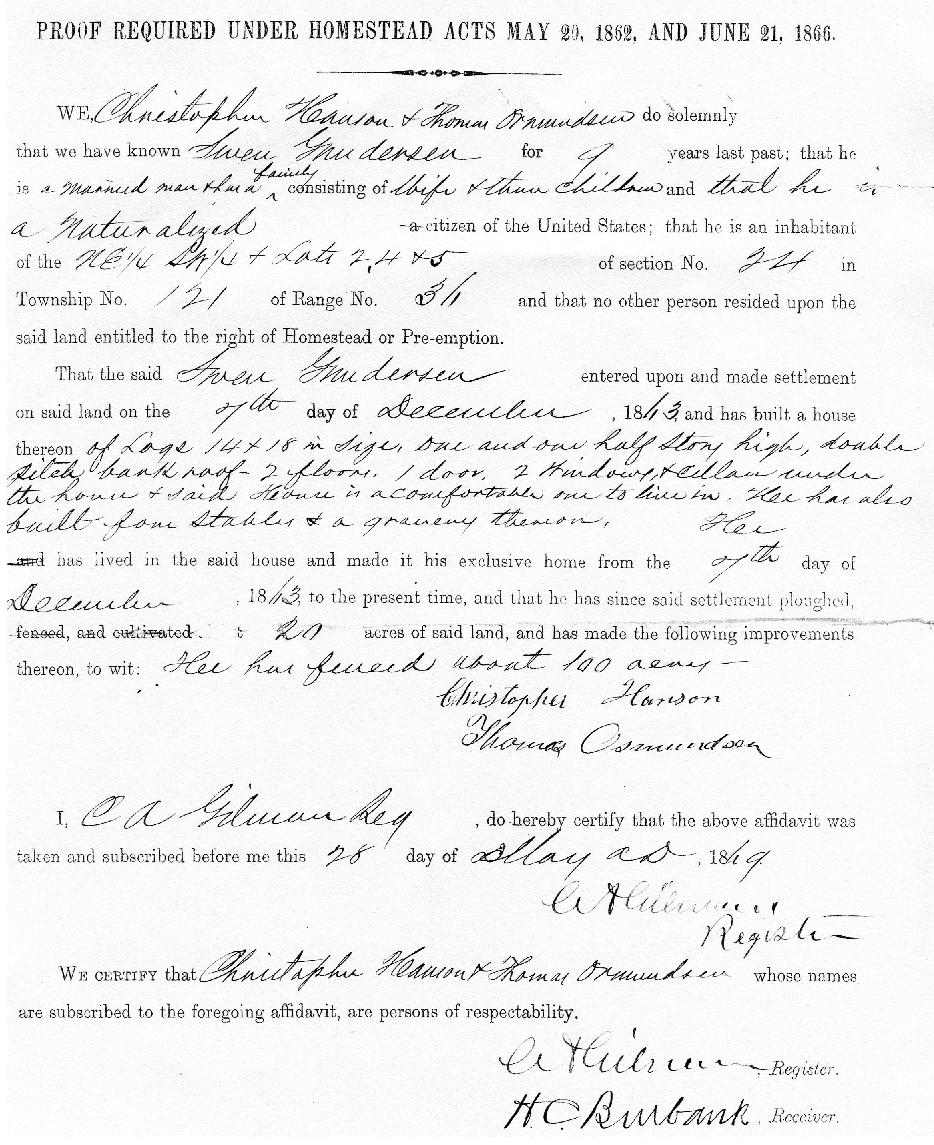 PROOF REQUIRED UNDER HOMESTEAD ACTS MAY 20, 1862, AND JUNE 21, 1866.
WE, Christopher Hanson & Thomas Osmundsen do solemnly
that we have known Swen Gundersen for 9 years last past; that he
is a married man & has a family consisting of Wife & three children and that he is
a Naturalized a citizen of the United States; that he is an inhabitant
of the NE 1/4 SW 1/4 & Lots 2, 4 & 5 of section No. 24 in
Township No. 121 of Range No. 36 and that no other person resided upon the
said land entitled to the right of Homestead or Pre-emption.
That the said Swen Gundersen entered upon and made settlement
on said land on the 7th day of December, 1863, and has built a house
thereon of Logs 14 + 18 in size, one and one half story high, double
pitch bank roof - 2 floors, 1 door, 2 windows, & cellar under
the house & said House is a comfortable one to live in. Hee has also
built four stables & a granery thereon. Hee
and has lived in the said house and made it his exclusive home from the 7th day of
December, 1863, to the present time, and that he has since said settlement ploughed,
fenced, and cultivated t 20 acres of said land, and has made the following improvements
thereon, to wit: Hee has fenced about 100 acres -
Christopher Hanson
Thomas Osmundsen
I, C A Gilman Reg, do hereby certify that the above affidavit was
taken and subscribed before me this 28 day of May AD, 1869
C A Gilman
Register
WE CERTIFY that Christopher Hanson & Thomas Osmundsen whose names
are subscribed to the foregoing affidavit, are persons of respectability.
C A Gilman, Register.
H. C. Burbank, Receiver.